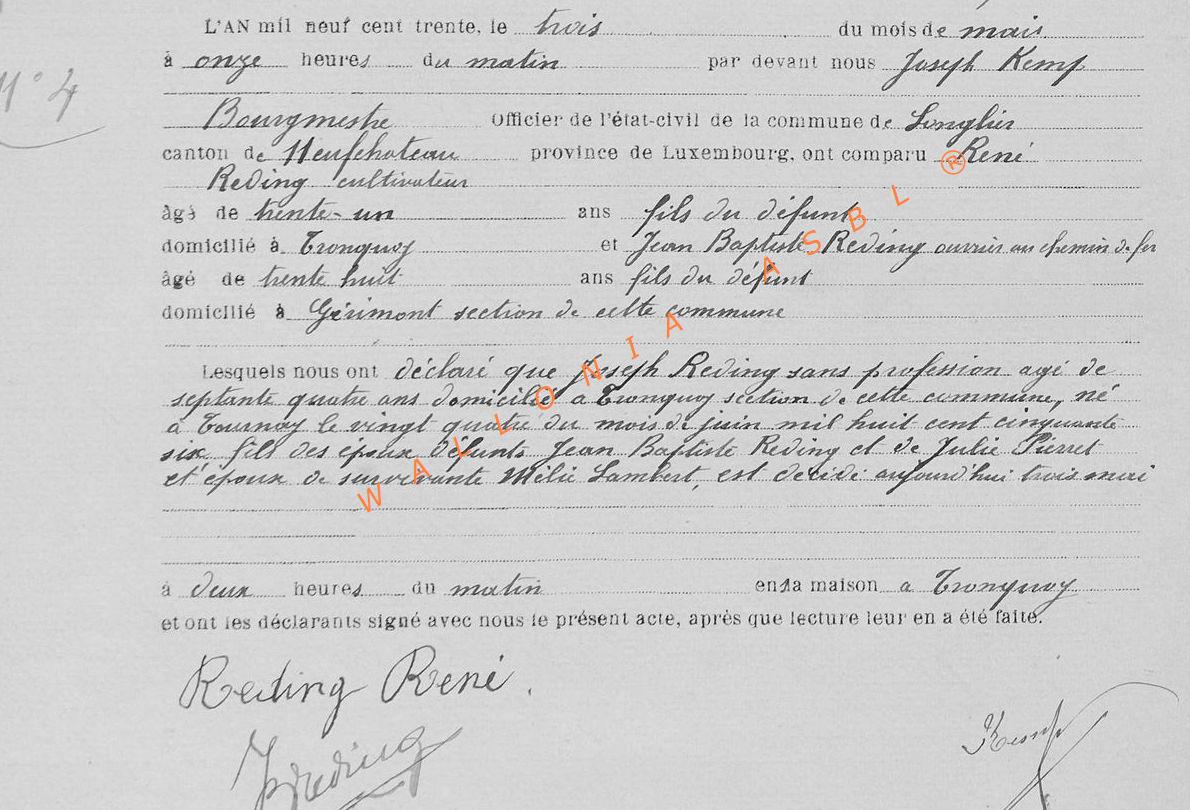 L'AN mil neuf cent trente, le trois du mois de mai
à onze heures du matin par devant nous Joseph Kemp
N° 4
Bourgmestre Officier de l'état-civil de la commune de Longlier
canton de Neufchateau province de Luxembourg, ont comparu René
Reding cultivateur
âgé de trente-un ans fils du défunt
domicilié à Tronquoy et Jean Baptiste Reding ouvrier au chemin de fer
âgé de trente huit ans fils du défunt
domicilié à Gérimont section de cette commune
Lesquels nous ont déclaré que Joseph Reding sans profession agé de
septante quatre ans domicilié à Tronquoy section de cette commune, né
à Tournay le vingt quatre du mois de juin mil huit cent cinquante
six fils des époux défunts Jean Baptiste Reding et de Julie Pierret
et époux de survivante Mélie Lambert, est décédé aujourd'hui trois mai
à deux heures du matin en la maison a Tronquoy
et ont les déclarants signé avec nous le présent acte, après que lecture leur en a été faite.
Reding René.
JBReding
Kemp
WALLONIA ASBL ®